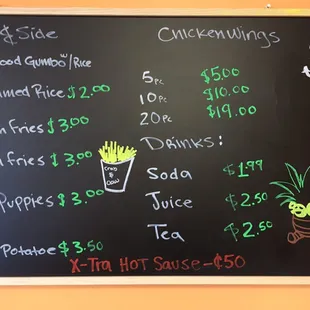 & Side
ood Gumbo w/Rice
amed Rice $2.00
n Fries $3.00
n fries $3.00
Puppies $3.00
Potatoe $3.50
Chicken Wings
5 pc $5.00
10 pc $10.00
20 pc $19.00
Drinks:
Soda $1.99
Juice $2.50
Tea $2.50
X-Tra HOT Sause - ¢50